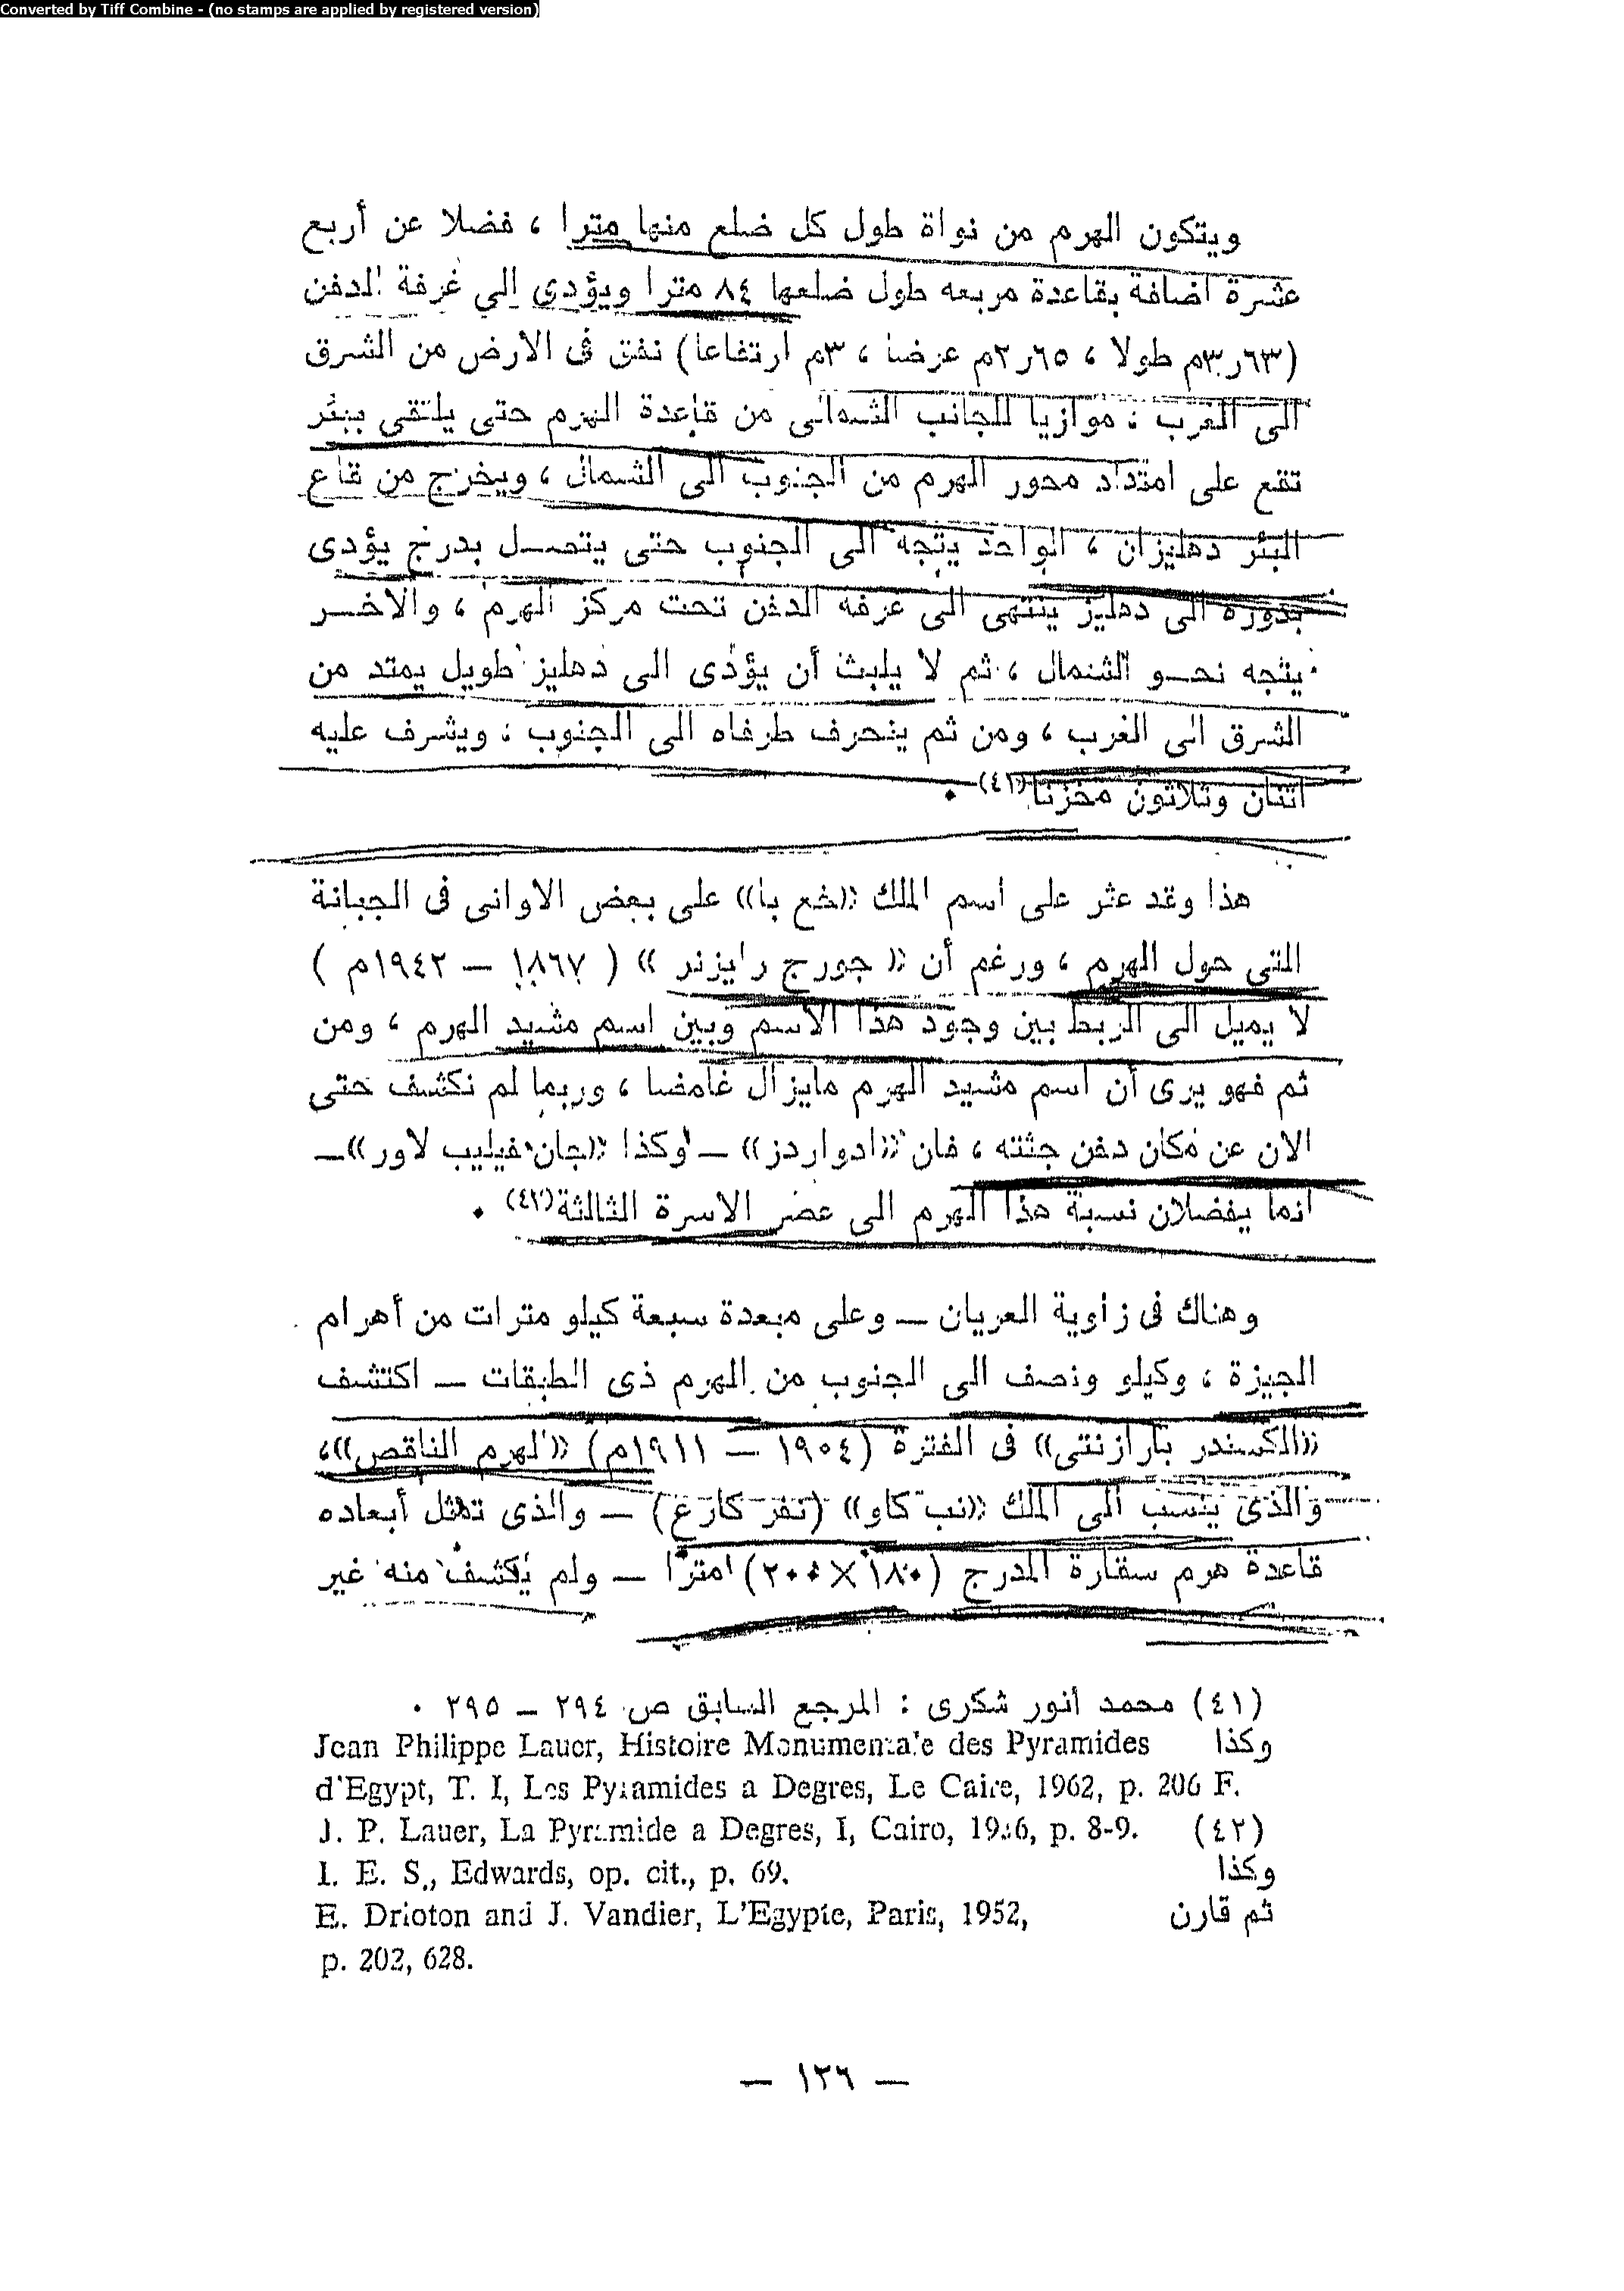 Converted by Tiff Combine - (no stamps are applied by registered version)
ويتكون الهرم من نواة طول كل ضلع منها مترا ، فضلا عن أربع
عشرة اضافة بقاعدة مربعه طول ضلعها ٨٤ مترا ويؤدى الى غرفة الدفن
(٦٣ر٣م طولا ، ٦٥ر٢م عرضا ، ٣م ارتفاعا) نفق فى الارض من الشرق
الى الغرب ، موازيا للجانب الشمالى من قاعدة الهرم حتى يلتقى ببئر
تقع على امتداد محور الهرم من الجنوب الى الشمال ، ويخرج من قاع
البئر دهليزان ، الواحد يتجه الى الجنوب حتى يتصل بدرج يؤدى
بدوره الى دهليز ينتهى الى غرفه الدفن تحت مركز الهرم ، والاخر
يتجه نحو الشمال ، ثم لا يلبث أن يؤدى الى دهليز طويل يمتد من
الشرق الى الغرب ، ومن ثم ينحرف طرفاه الى الجنوب ، ويشرف عليه
اثنان وثلاثون مخزنا(٤١) •
هذا وقد عثر على اسم الملك «خع با» على بعض الاوانى فى الجبانة
التى حول الهرم ، ورغم أن « جورج رايزنر » ( ١٨٦٧ – ١٩٤٢م )
لا يميل الى الربط بين وجود هذا الاسم وبين اسم مشيد الهرم ، ومن
ثم فهو يرى أن اسم مشيد الهرم مايزال غامضا ، وربما لم نكشف حتى
الان عن مكان دفن جثته ، فان «ادواردز» – وكذا «جان فيليب لاور» –
انما يفضلان نسبة هذا الهرم الى عصر الاسرة الثالثة(٤٢) •
وهناك فى زاوية العريان – وعلى مبعدة سبعة كيلو مترات من أهرام
الجيزة ، وكيلو ونصف الى الجنوب من الهرم ذى الطبقات – اكتشف
«الكسندر بارازنتى» فى الفترة (١٩٠٤ – ١٩١١م) «الهرم الناقص»،
والذى ينسب الى الملك «نب كاو» (نفر كارع) – والذى تمثل أبعاده
قاعدة هرم سقارة المدرج (١٨٠×٢٠٠) مترا – ولم يكشف منه غير
(٤١) محمد أنور شكرى : المرجع السابق ص ٢٩٤ – ٢٩٥ •
وكذا Jean Philippe Lauer, Histoire Monumentale des Pyramides
d'Egypt, T. I, Les Pyramides a Degres, Le Caire, 1962, p. 206 F.
(٤٢) J. P. Lauer, La Pyramide a Degres, I, Cairo, 1936, p. 8-9.
وكذا I. E. S., Edwards, op. cit., p. 69.
ثم قارن E. Drioton and J. Vandier, L'Egypte, Paris, 1952,
p. 202, 628.
– ١٢٦ –